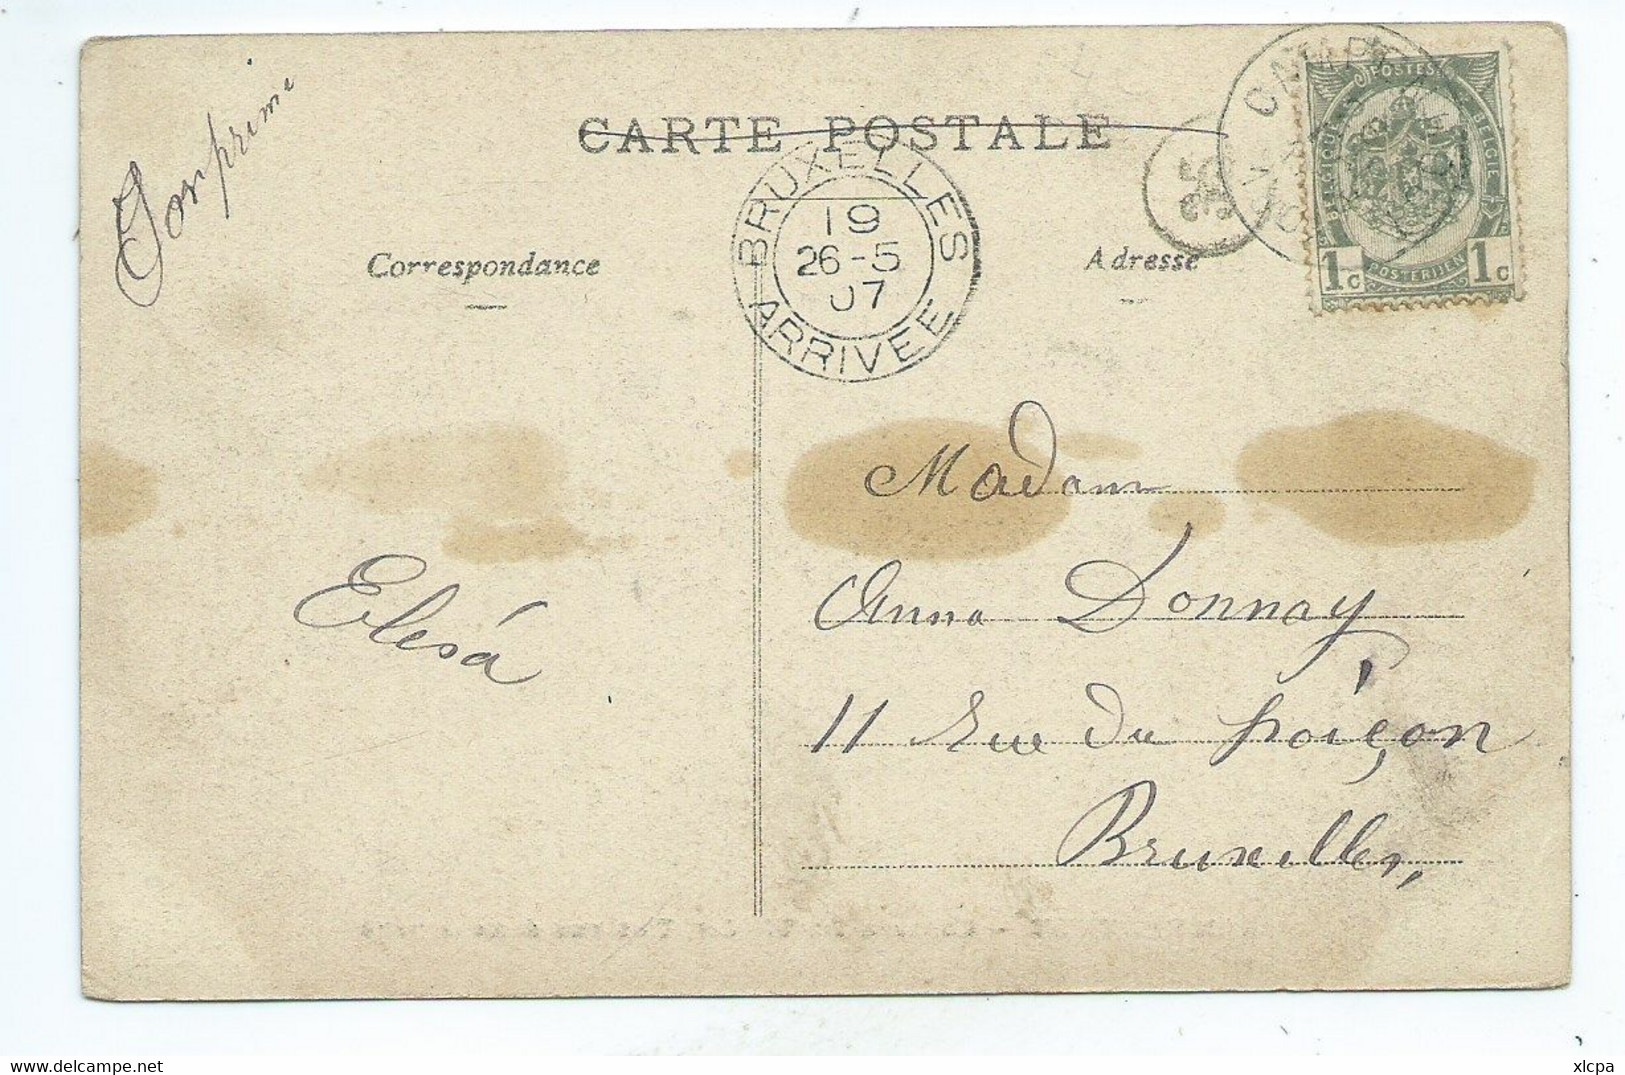 Imprimé
CARTE POSTALE
Correspondance
Adresse
BRUXELLES
19
26-5
07
ARRIVEE
POSTES
BELGIQUE BELGIË
1c POSTERIJEN 1c
Madam
Anna Donnay
11 Rue du Poinçon
Bruxelles,
Elesá
xlcpa